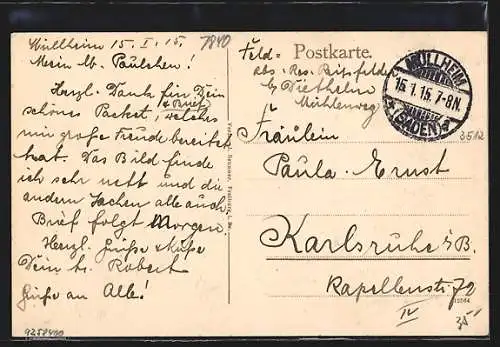 Müllheim 15. I. 15.
7840
Mein lb. Paulchen!
Herzl. Dank für Dein
schönes Packet, & Brief welches
mir große Freude bereitet
hat. Das Bild finde
ich sehr nett und die
andern Sachen alle auch
Brief folgt Morgen.
Herzl. Grüße & Küße
Dein tr. Robert
Grüße an Alle!
9258400
Feld= Postkarte.
Abs. Res.
b/ Diethelm
Mühlenweg
MÜLLHEIM
15.1.15. 7-8N.
(BADEN) a
3512
Fräulein
Paula Ernst
Karlsruhe i/B.
Kapellenstr. 72
IV